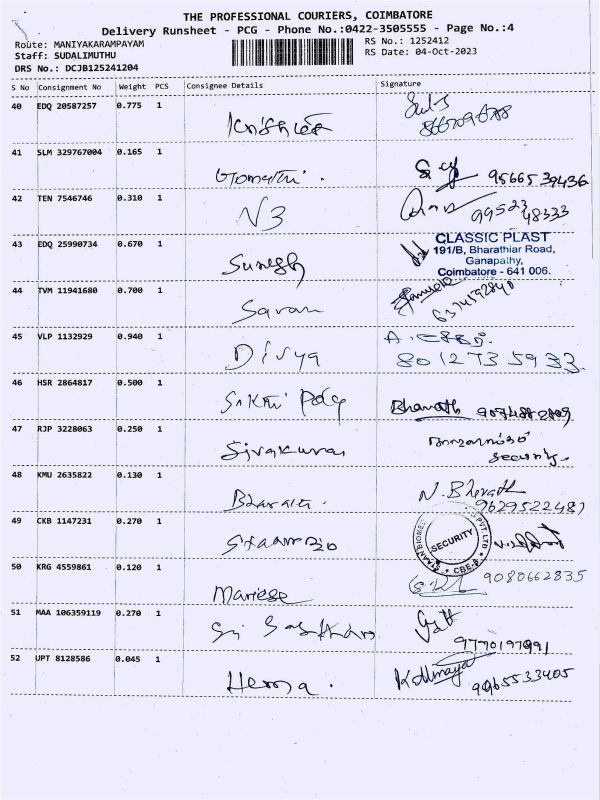 THE PROFESSIONAL COURIERS, COIMBATORE
Delivery Runsheet - PCG - Phone No.:0422-3505555 - Page No.:4
Route: MANIYAKARAMPAYAM
RS No.: 1252412
Staff: SUDALIMUTHU
RS Date: 04-Oct-2023
DRS No.: DCJB125241204
S No Consignment No Weight PCS Consignee Details Signature
40 EDQ 20587257 0.775 1
41 SLM 329767004 0.165 1
9566539436
42 TEN 7546746 0.310 1 N3
99523
48333
43 EDQ 25990734 0.670 1 Suresh
CLASSIC PLAST
191/B, Bharathiar Road,
Ganapathy,
Coimbatore - 641 006.
44 TVM 11941680 0.700 1 Saran
6374592840
45 VLP 1132929 0.940 1 Divya
8012735933
46 HSR 2864817 0.500 1 Sakthi
Bharath
47 RJP 3228063 0.250 1 Sivakumar
Security
48 KMU 2635822 0.130 1 Bharath
N. Bharath
9629522481
49 CKB 1147231 0.270 1
SECURITY
PVT LTD
CBE-
50 KRG 4559861 0.120 1
9080662835
51 MAA 106359119 0.270 1 Sri
9770197991
52 UPT 8128586 0.045 1 Hema.
9965533405